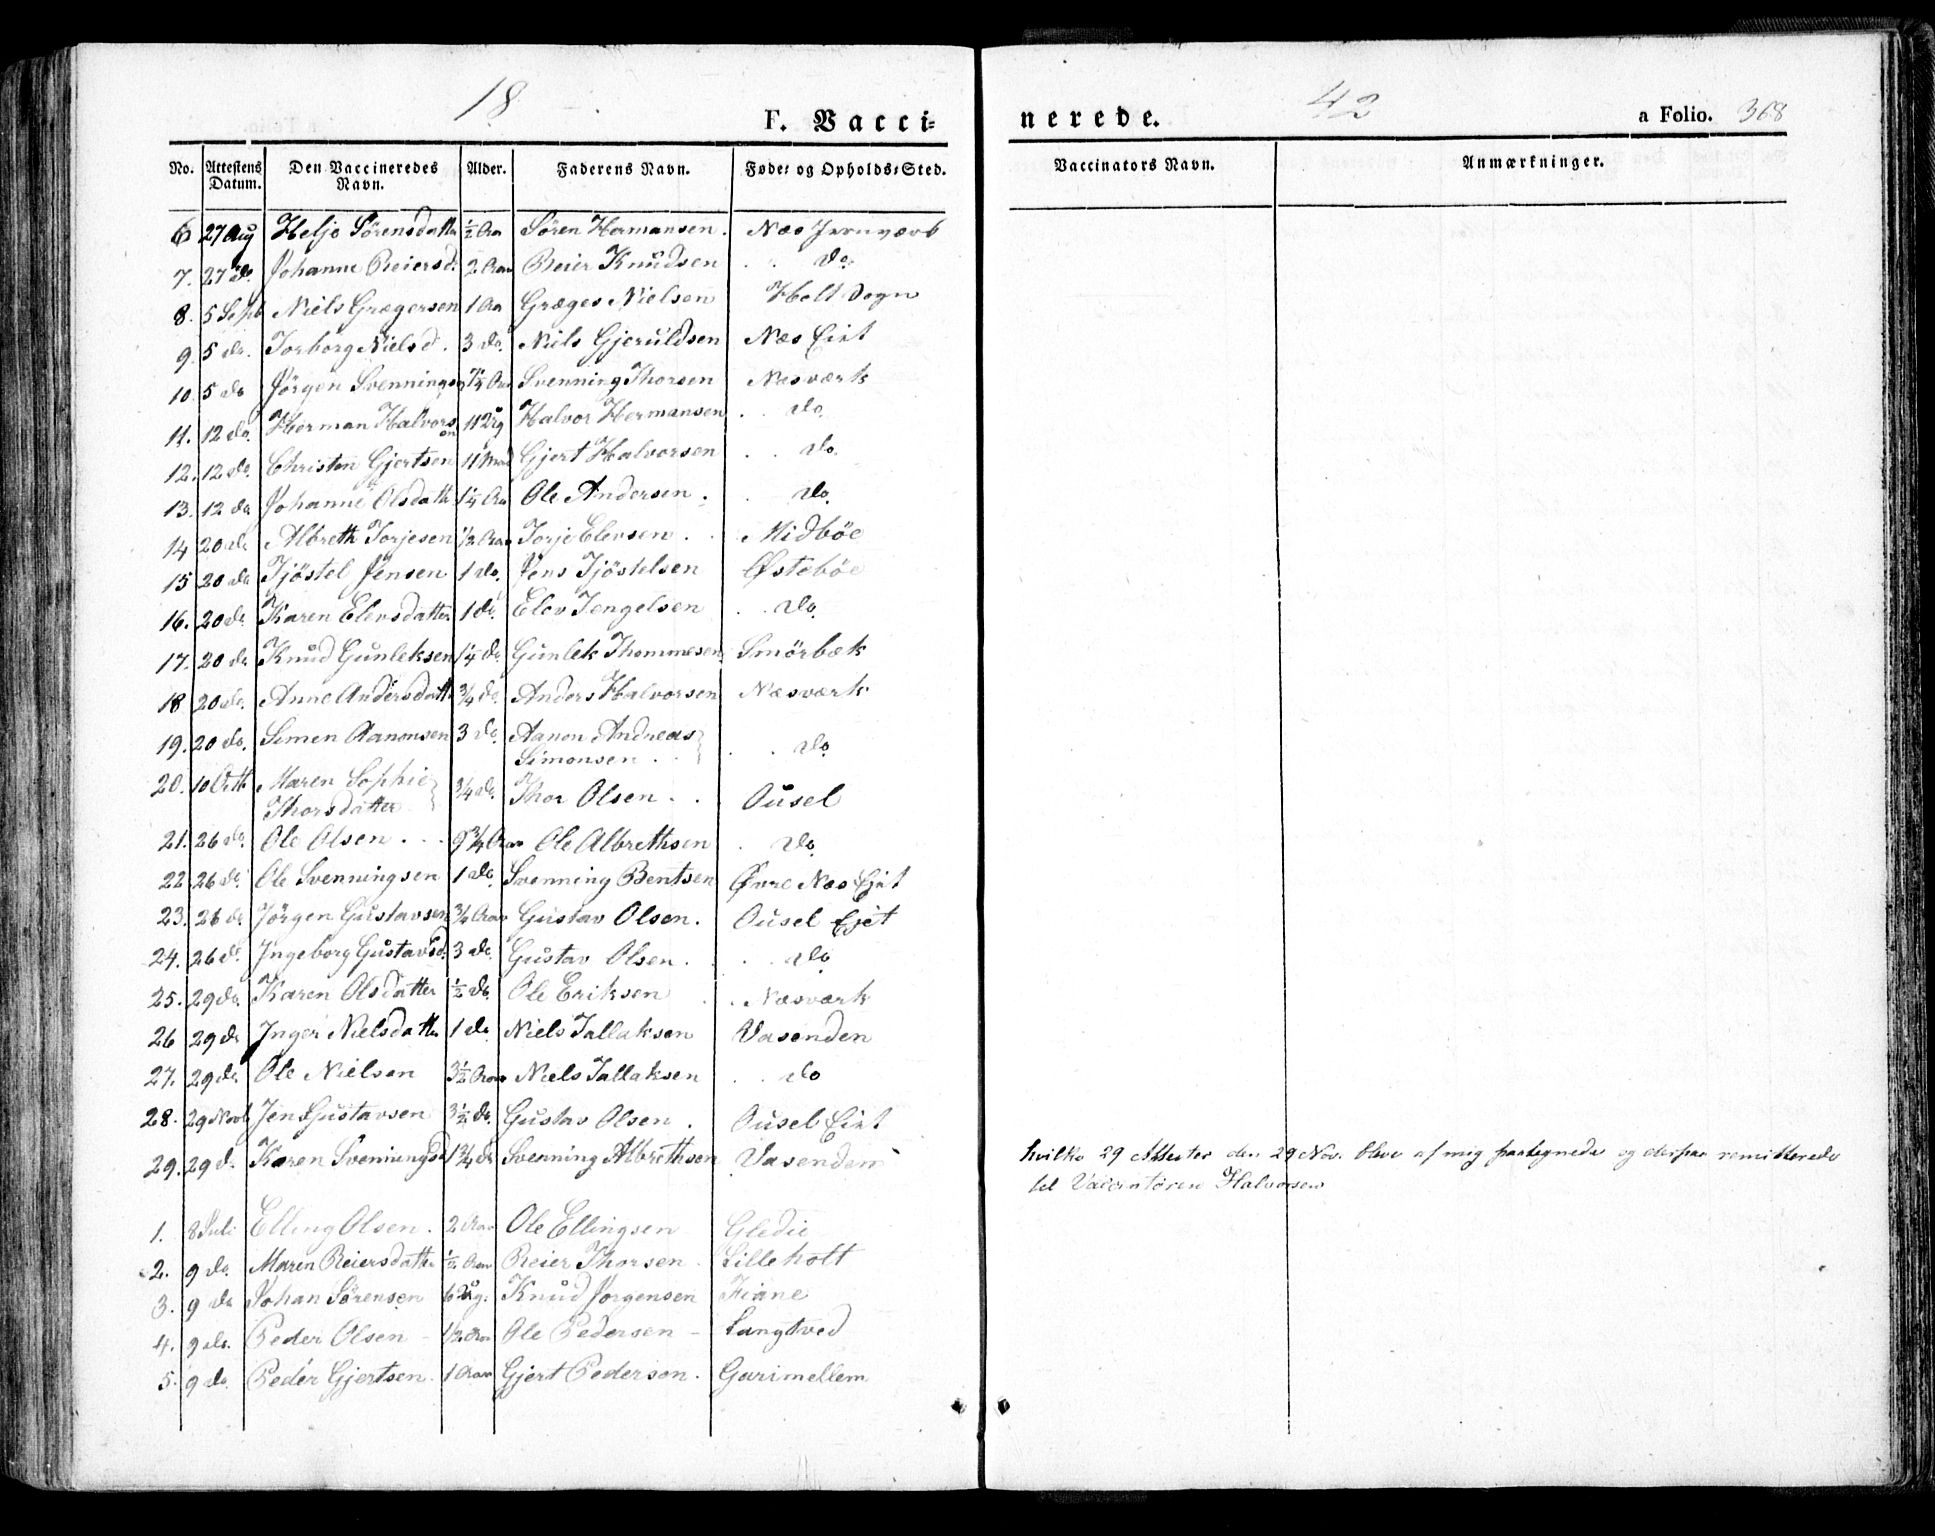 18
F. Vacci-
No. Attestens Datum. Den Vaccineredes Navn. Alder. Faderens Navn. Føde- og Opholds-Sted.
6 27 Aug Helje Sörensdatter ½ Aar Sören Hermansen. Næs Jernværk
7. 27 do. Johanne Reiersd. 2 Aar Reier Knudsen . . do
8. 5 Sept Niels Grægersen 1 Aar Græges Nielsen Holt Sogn
9. 5 do. Torborg Nielsd. 3 do. Niels Gjeruldsen Næs Eiet
10. 5 do Jörgen Svennings Svenning Thorsen Næsværk
11. 12 do. Herman Halvorsen 11 Ug Halvor Hermansen . . do
12. 12 do. Christen Gjertsen 11 Gjert Halvorsen . . do.
13. 12 do Johanne Olsdatte 1¼ Aar Ole Andersen . . do.
14 20 do Albreth Torjesen ½ Aar Torje Elevsen . Midböe
15 20 do Tjöstel Jensen 1 do. Jens Tjöstelsen Østeböe
16. 20 do. Karen Elevsdatter 1 do. Elev Tengelsen . . do.
17. 20 do Knud Gunleksen 1¼ do. Gunlek Thommesen Smörbæk
18 20 do. Anne Andersdatte ¾ do. Anders Halvorsen Næsværk
19. 20 do. Simen Aanonsen 3 do. Aanon Andreas . . do
Simonsen . .
20. 10 Octb Maren Sophie ¾ do. Thor Olsen . . Ousel
Thorsdatter
21. 26 do. Ole Olsen . . . 9¾ Aar Ole Albrethsen . do.
22. 26 do. Ole Svenningsen 1 do. Svenning Bentsen Øvre Næs Ejet
23. 26 do Jörgen Gustavsen ¾ Aar Gustav Olsen. Ousel Ejet
24. 26 d. Ingeborg Gustavsd. 3 do. Gustav Olsen . . . do
25. 29 do. Karen Olsdatter ½ do. Ole Eriksen . . Næsværk
26 29 do Inger Nielsdatte 1 do. Niels Tallaksen Vasenden
27. 29 do. Ole Nielsen 3½ Aar Niels Tallaksen . . do
28. 29 Novb Jens Gustavsen 3½ do. Gustav Olsen . Ousel Eiet
29. 29 d. Karen Svenningsd 1¾ do Svenning Albrethsen Vasenden
1. 8 Juli Elling Olsen. 2 Aar Ole Ellingsen Gledie
2. 9 do. Maren Reiersdatte ½ Aar Reier Thorsen . Lilleholt
3. 9 do Johan Sörensen 6 Ug. Knud Jörgensen Fiane
4. 9 do. Peder Olsen - ½ Aar Ole Pedersen - Langtved
5. 9 do. Peder Gjertsen. 1 Aar Gjert Pedersen. Garimellem
nerede. 42 a Folio. 368
Vaccinators Navn. Anmærkninger.
hvilke 29 Attester den 29 Nov. bleve af mig paategnede og derpaa remitterede
til Vaccinatören Halvorsen